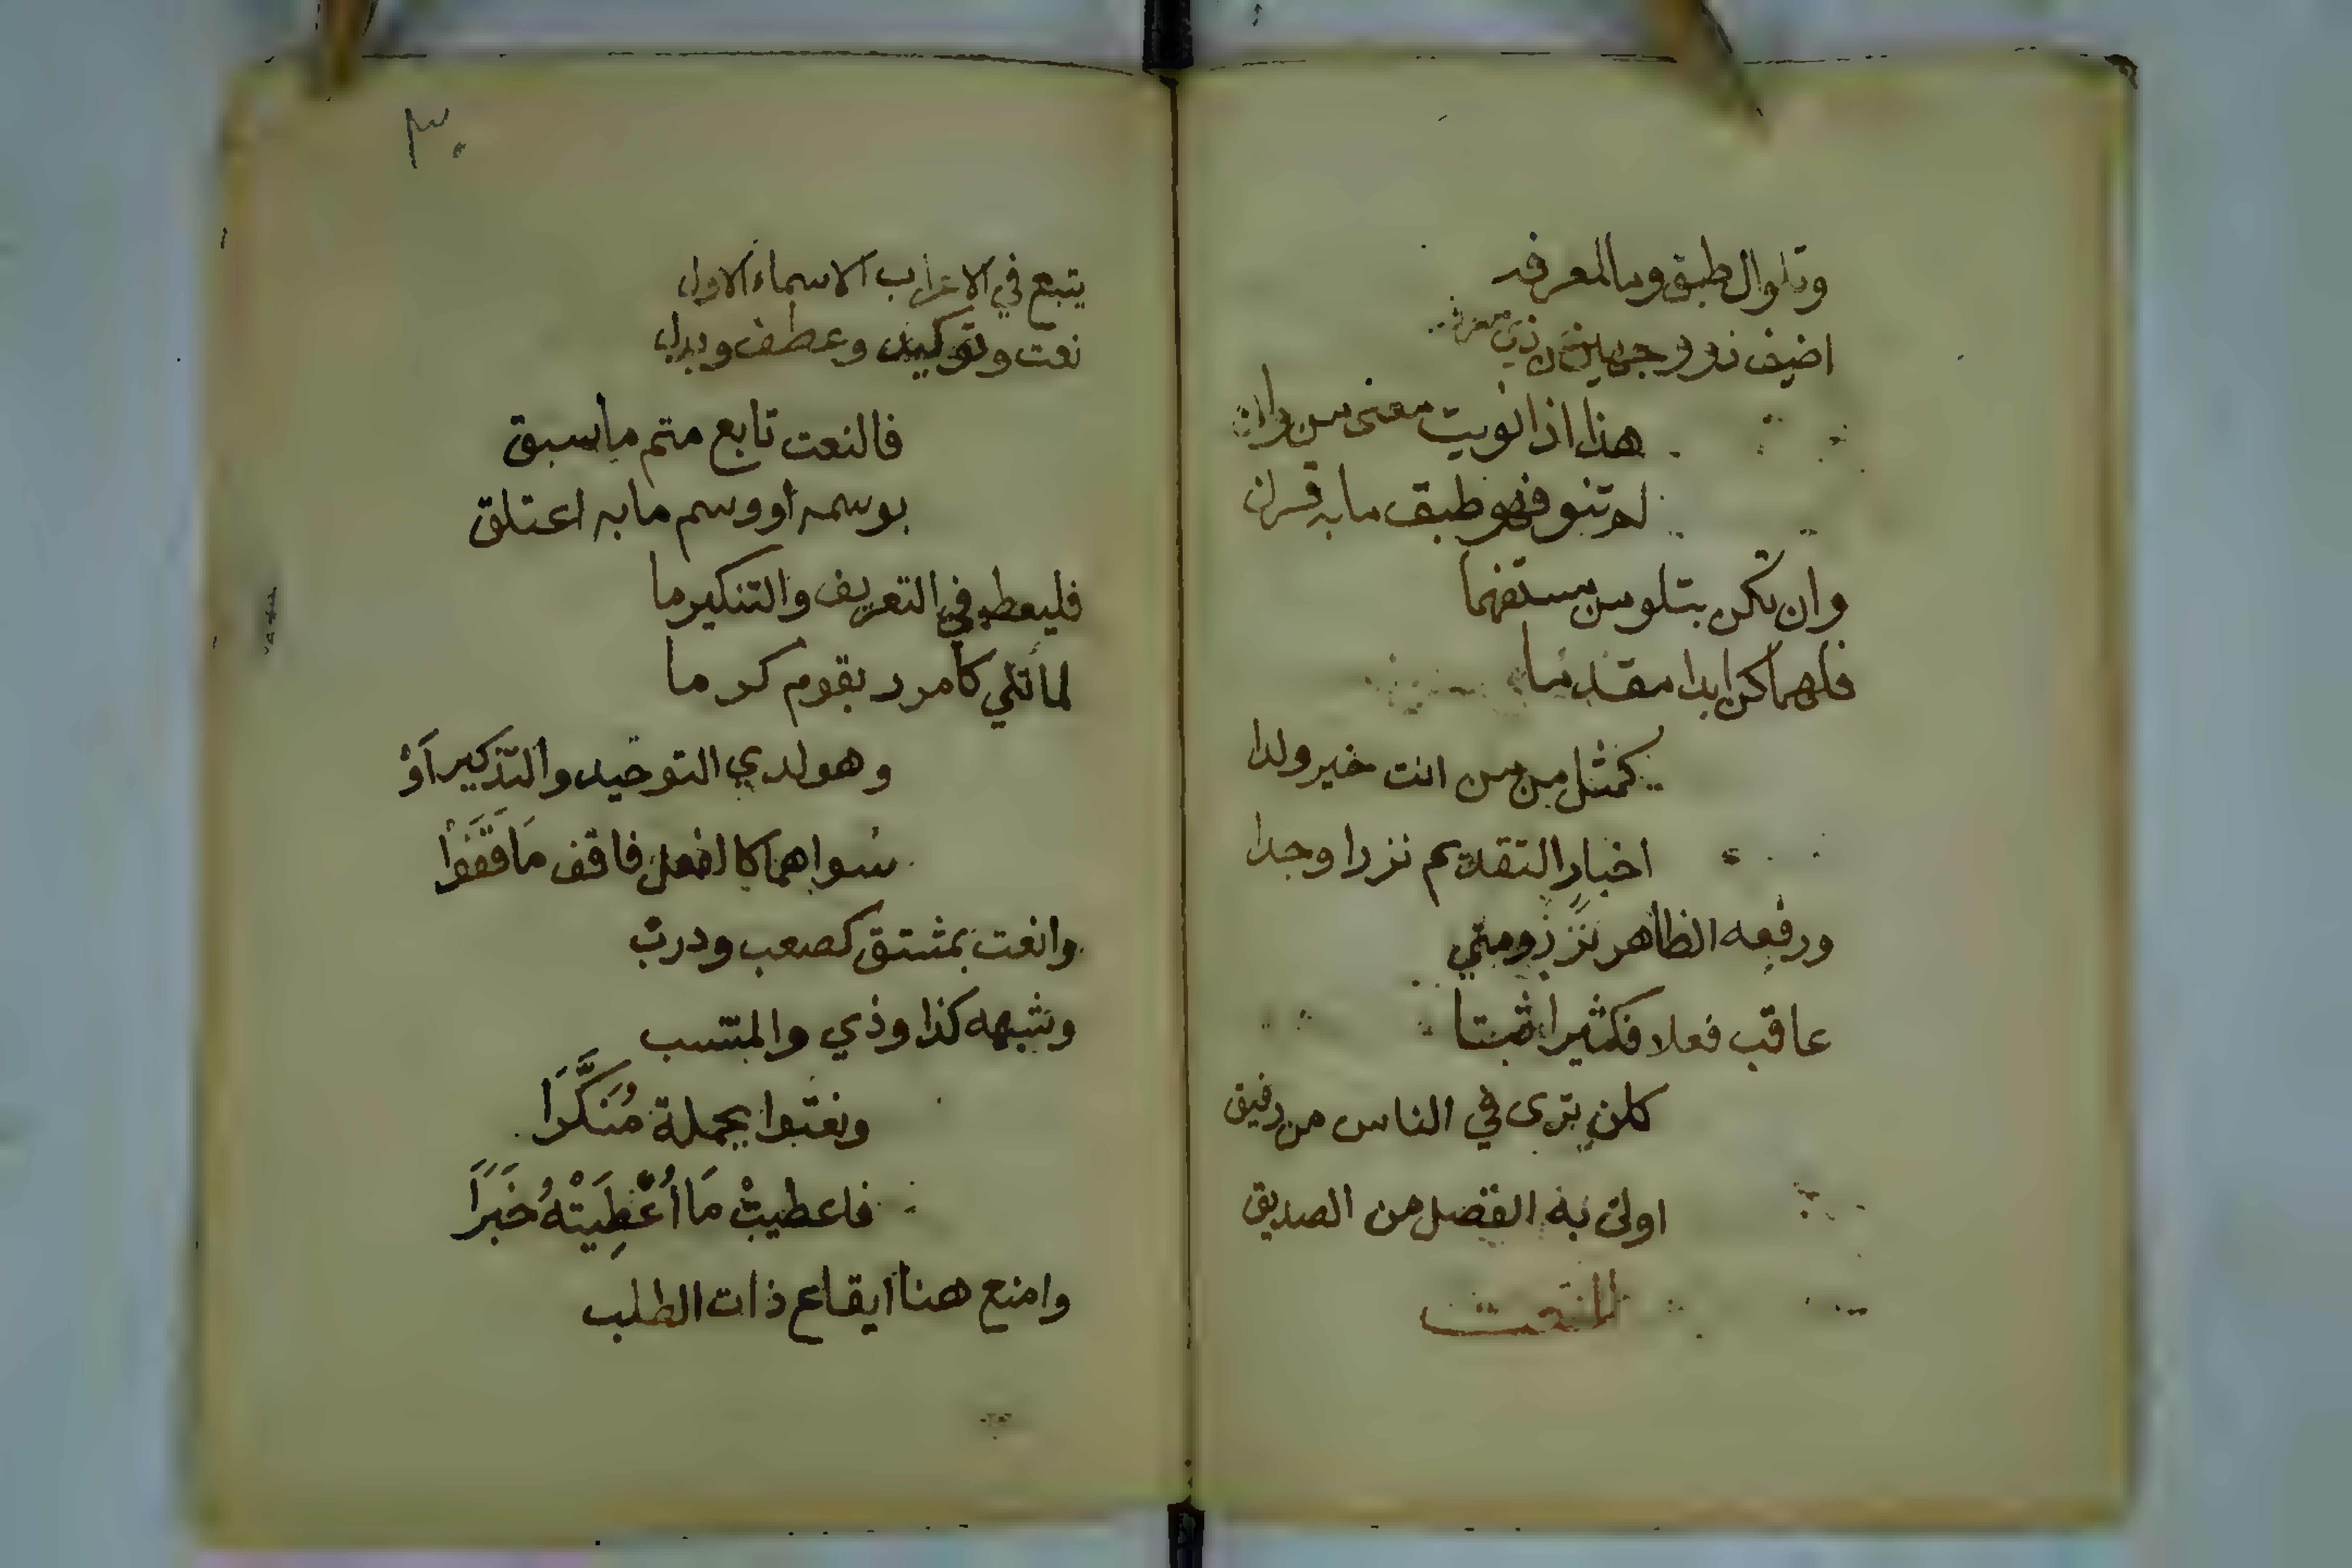 وتلو ال طبق وما لمعرفه
اضيف ذو وجهين عن ذي معرفه
هذا اذا نويت معنى من وان
لم تنو فهو طبق ما به قرن
وان تكن بتلو من مستفهما
فلهما كن ابدا مقدما
كمثل من من انت خير ولدا
اخبار التقديم نزرا وجدا
ورفعه الظاهر نزر ومتي
عاقب فعلا فكثيرا ثبتا
كلن ترى في الناس من رفيق
اولى به الفضل من الصديق
النعت
٣٠
يتبع في الاعراب الاسماء الاول
نعت وتوكيد وعطف وبدل
فالنعت تابع متم ما سبق
بوسمه او وسم ما به اعتلق
فليعط في التعريف والتنكير ما
لما تلي كامرر بقوم كرما
وهو لدي التوحيد والتذكير اَوْ
سواهما كالفعل فاقف مَا قَفَوْا
وانعت بمشتق كصعب ودرب
وشبهه كذا وذي والمنتسب
ونعتوا بجملة مُنَكَّرَا
فاعطيتْ مَا اُعْطِيَتْهُ خَبَرَا
وامنع هنا ايقاع ذات الطلب